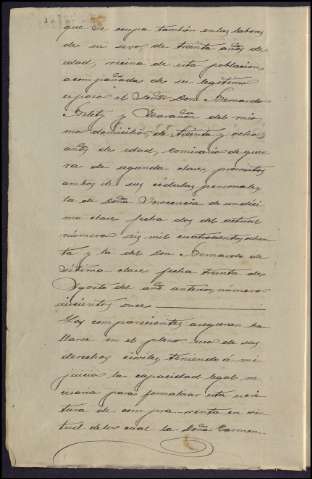 que se ocupa también en las labores
de su sexo de treinta años de
edad, vecina de esta poblacion
acompañada de su legitimo
esposo el Señor Don Bernardo
y Marañon del mis
mo domicilio, de treinta y ocho
años de edad, Comisario de guer
ra de segunda clase, provistos
ambos de sus cédulas personales
la de Doña Inocencia de undéci
ma clase fecha dos del actual
número seis mil cuatrocientos ochen
ta y la del Don Bernardo de
séptima clase fecha treinta de
Agosto del año anterior, número
quinientos once
Los comparecientes aseguran ha
llarse en el pleno uso de sus
derechos civiles teniendo á mi
juicio la capacidad legal ne
cesaria para formalizar esta escri
tura de compra-venta en vir
tud de la cual la Doña Carmen